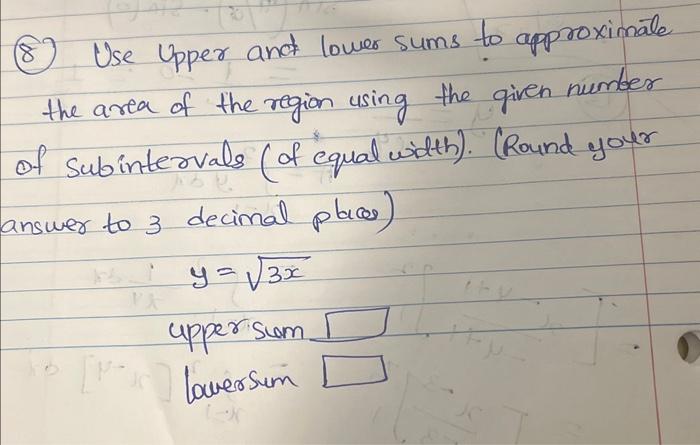 (8) Use Upper and lower sums to approximate
the area of the region using the given number
of subintervals (of equal width). (Round your
answer to 3 decimal places)
y = √3x
upper sum
lower sum